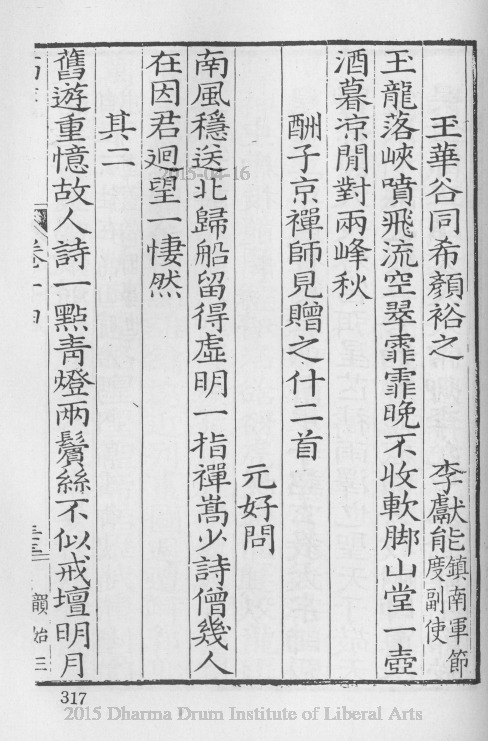 玉華谷同希顏裕之　李獻能鎮南軍節度副使
玉龍落峽噴飛流空翠霏霏晚不收軟脚山堂一壺
酒暮凉閒對兩峰秋
酬子京禪師見贈之什二首
元好問
南風穩送北歸船留得虛明一指禪嵩少詩僧幾人
在因君迴望一悽然
其二
舊遊重憶故人詩一㸃靑燈兩鬢絲不似戒壇明月
卷十四
韻始三
317
2015-04-16
2015 Dharma Drum Institute of Liberal Arts